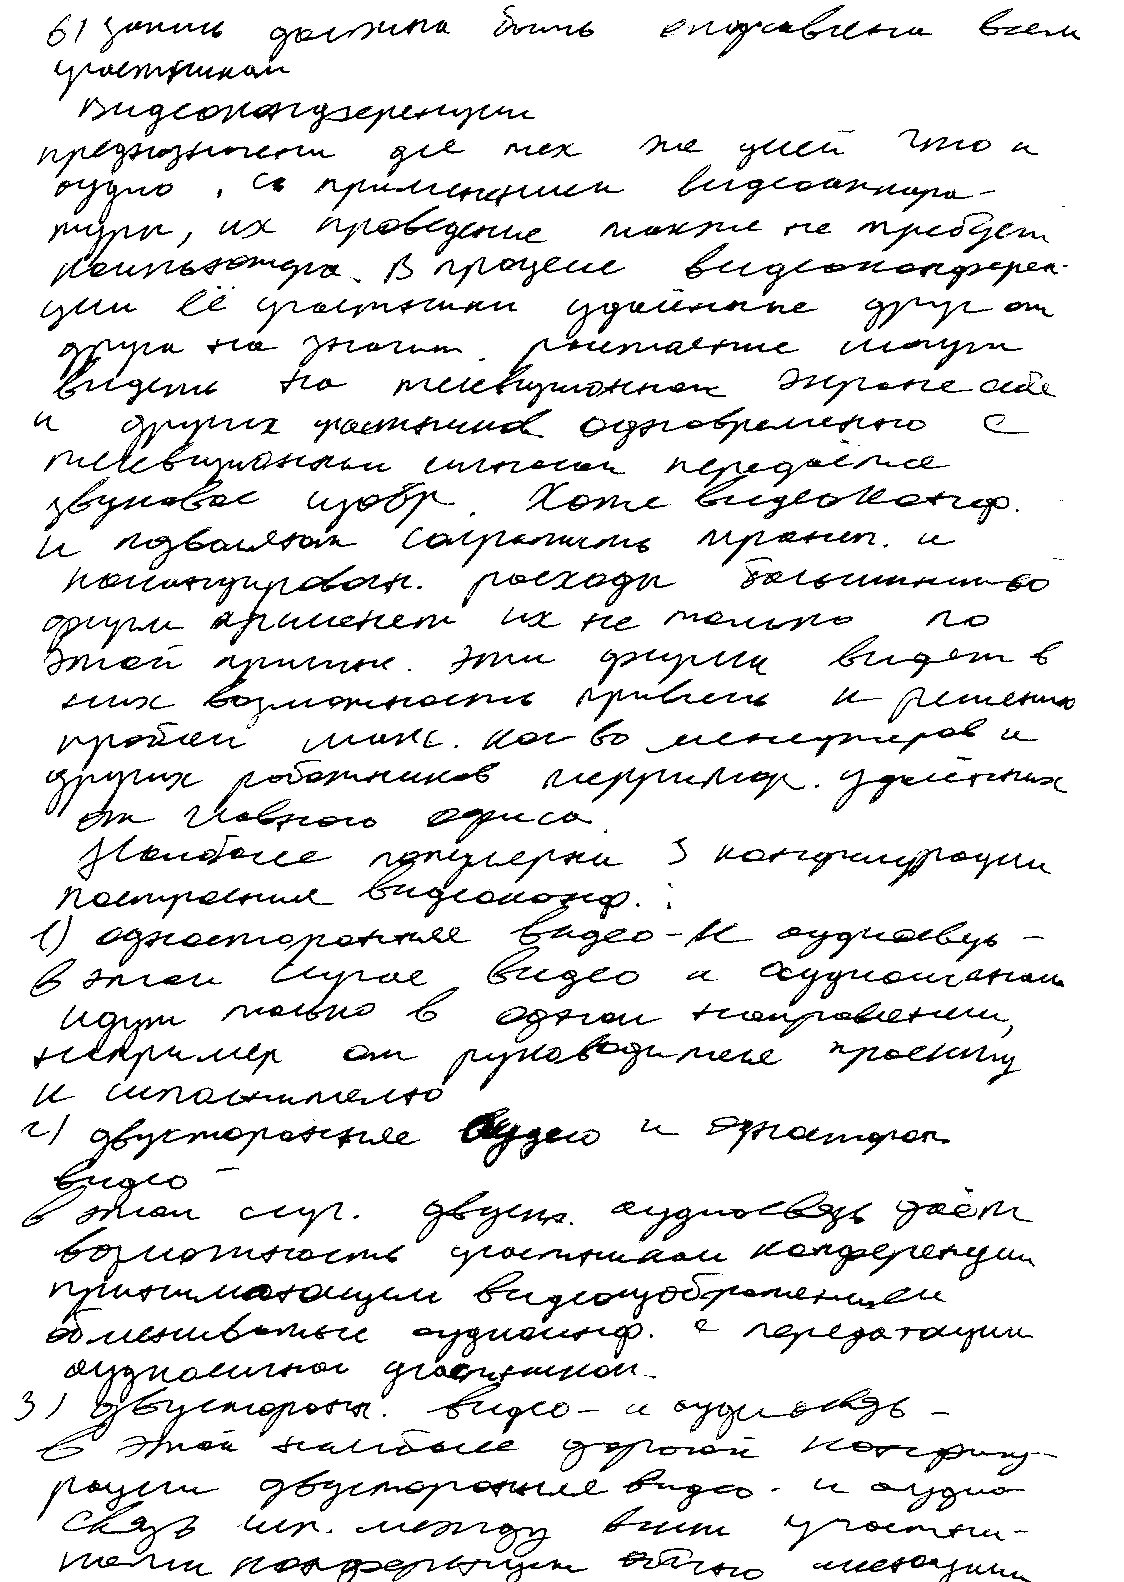 6) запись должна быть отправлена всем
участникам
Видеоконференции
предназначены для тех же целей что и
аудио, со применением видеоаппара-
туры, их проведение также не требует
компьютера. В процессе видеоконферен-
ции её участники удалённые друг от
друга на значит. расстояние могут
видеть на телевизионном экране себя
и других участников одновременно с
телевизионным сигналом передаётся
звуковое изобр. Хотя видеоконф.
и позволяют сократить трансп. и
командирован. расходы большинство
фирм применяет их не только по
этой причин. Эти фирмы видят в
них возможность привлечь к решению
проблем макс. кол во менеджеров и
других работников территор. удалённых
от главного офиса.
Наиболее популярны 3 конфигурации
построения видеоконф. :
1) односторонняя видео-и аудиосвязь -
в этом случае видео и аудиосигнал
идут только в одном направлении,
например от руководителя проекта
к исполнителю
2) двусторонняя аудио и односторон.
видео -
в этом случ. двуст. аудиосвязь даёт
возможность участникам конференции
принимающим видеоизображением
обмениваться аудиоинф. с передающим
аудиосигнал участником.
3) двусторон. видео- и аудиосвязь -
в этой наиболее дорогой конфигу-
рации двусторонняя видео- и аудио
связь исп. между всеми участни-
ками конференции обычно